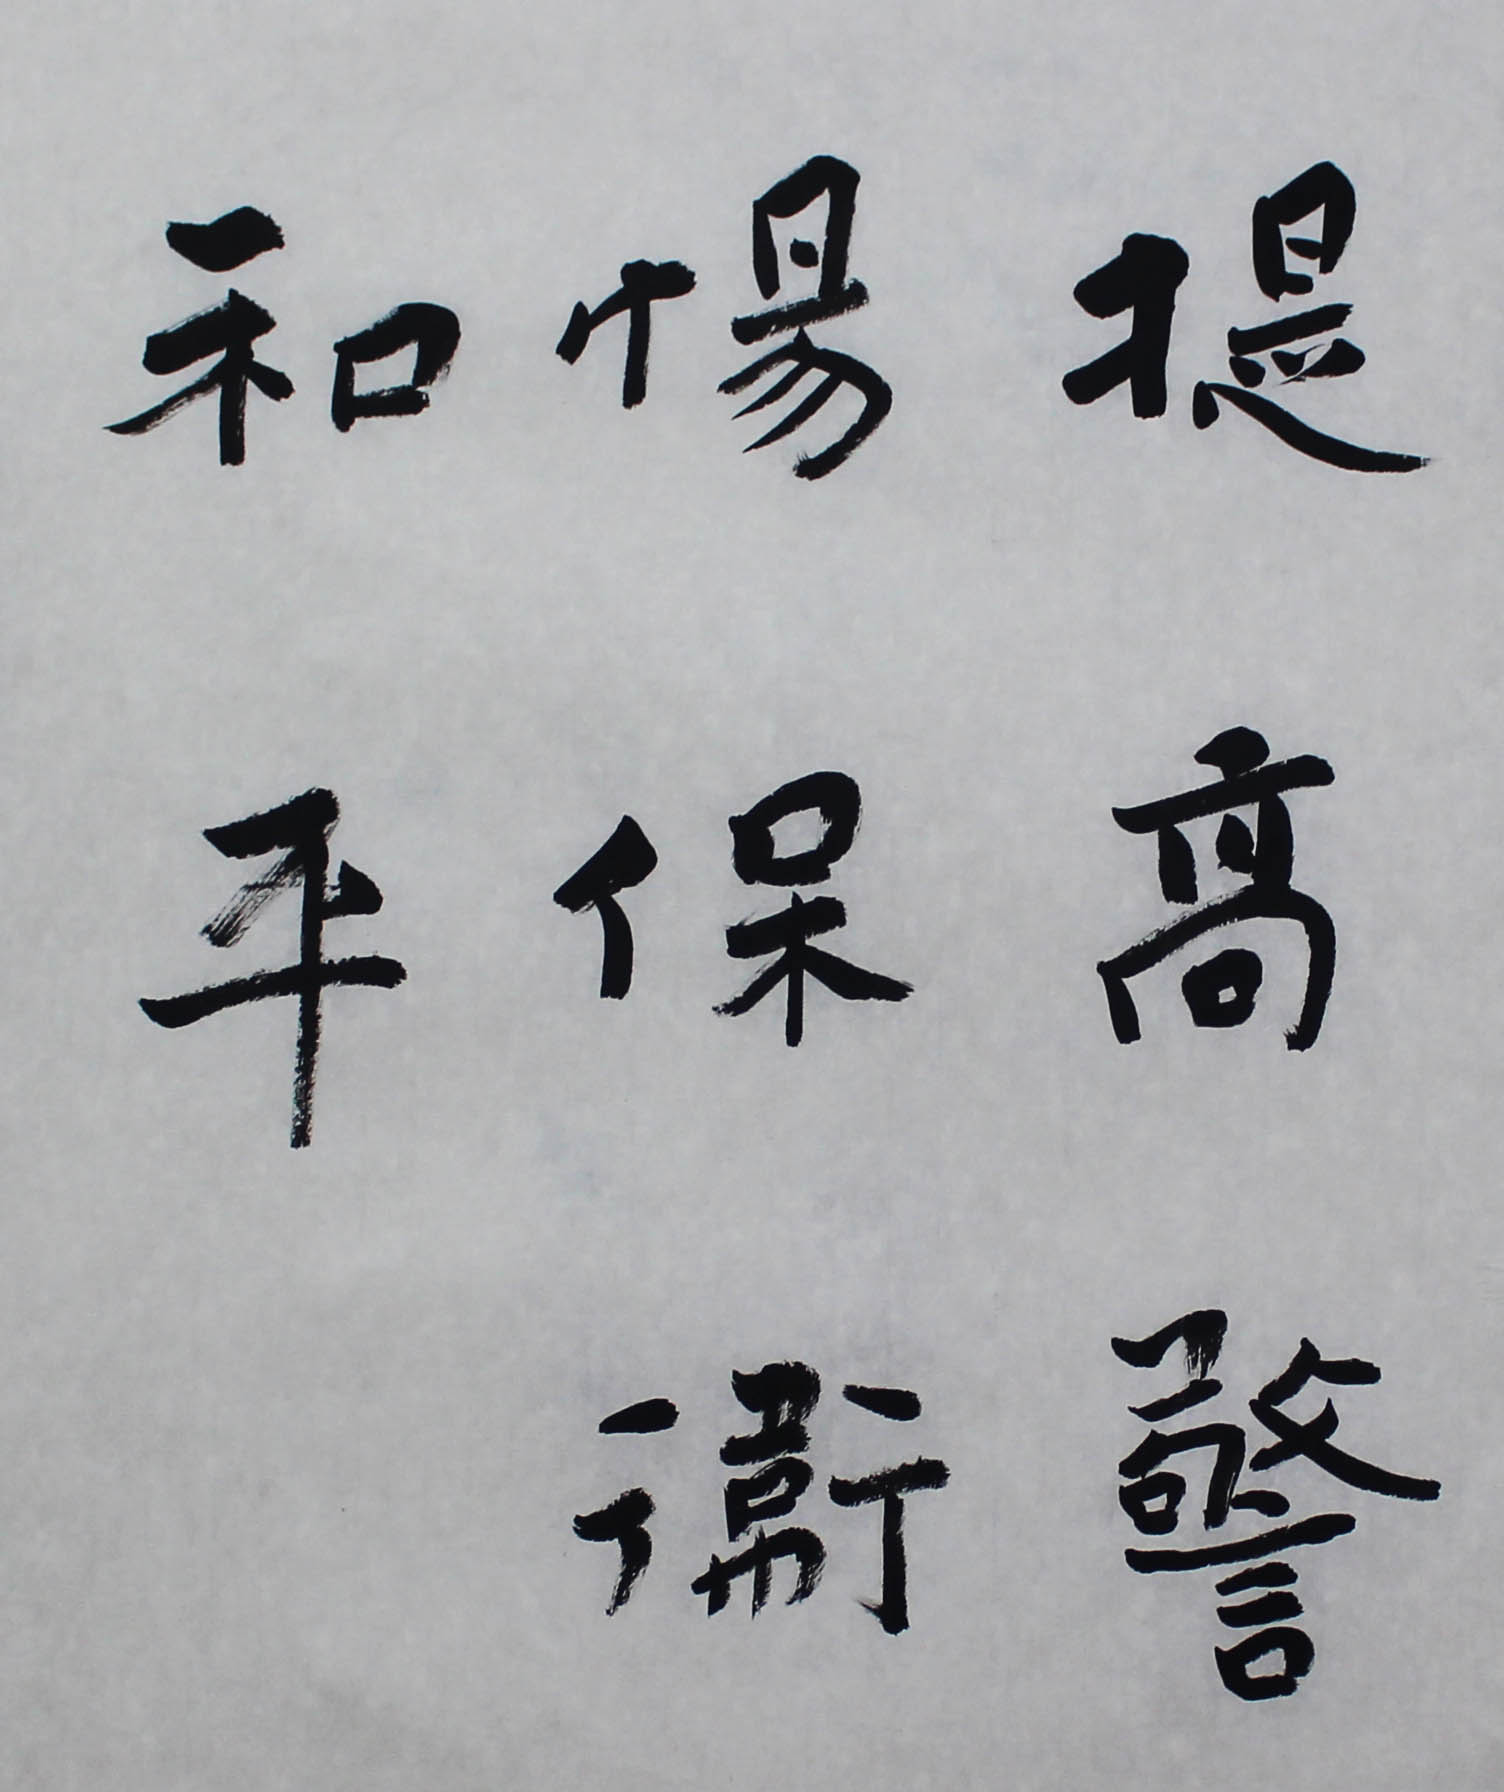 提高警
惕保衛
和平